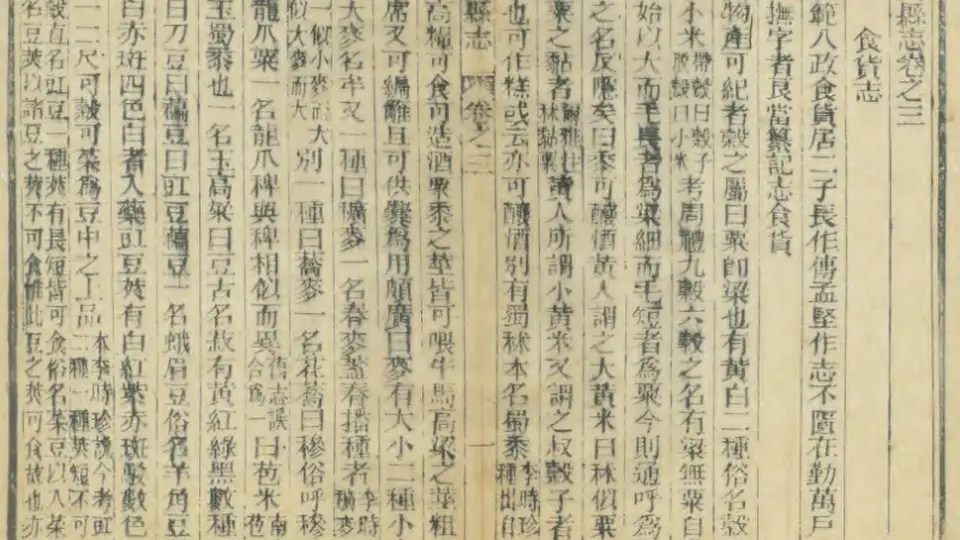 縣志卷之三
食貨志
範八政食貨居二子長作傳孟堅作志不匱在勤萬戶
撫字者良當纂記志食貨
物產可紀者穀之屬曰粟即粱也有黃白二種俗名穀
小米帶殼曰穀子脫殼曰小米考周禮九穀六穀之名有粱無粟自
始以大而毛長者為粱細而毛短者為粟今則通呼為
之名反隱矣曰黍可釀酒黃人謂之大黃米曰秫似粟
粟之黏者爾雅注秫黏粟黃人所謂小黃米又謂之叔穀子者
也可作糕或云亦可釀酒別有蜀秫本名蜀黍李時珍種出自
縣志 卷之三 一
高糧可食可造酒粟黍之莖皆可喂牛馬高粱之莖粗
席又可編籬且可供爨為用頗廣曰麥有大小二種小
大麥名牟又一種曰穬麥一名春麥葢春播種者李時穬麥
一似小麥而大似大麥而大別一種曰蕎麥一名花蕎曰穇俗呼穇
龍爪粟一名龍爪稗與稗相似而異舊志誤合為一曰苞米南苞
玉蜀黍也一名玉高粱曰豆古名菽有黃紅綠黑數種
曰刀豆曰藊豆曰豇豆藊豆一名蛾眉豆俗名羊角豆
白赤斑四色白者入藥豇豆莢有白紅紫赤斑駁數色
一二尺可穀可菜為豆中之上品本李時珍說今考豇二種一種莢短不可
穀豆名豇豆一種莢有長短皆可食俗名菜豆以入菜
名豆莢以諸豆之莢不可食惟此豆之莢可食故也亦